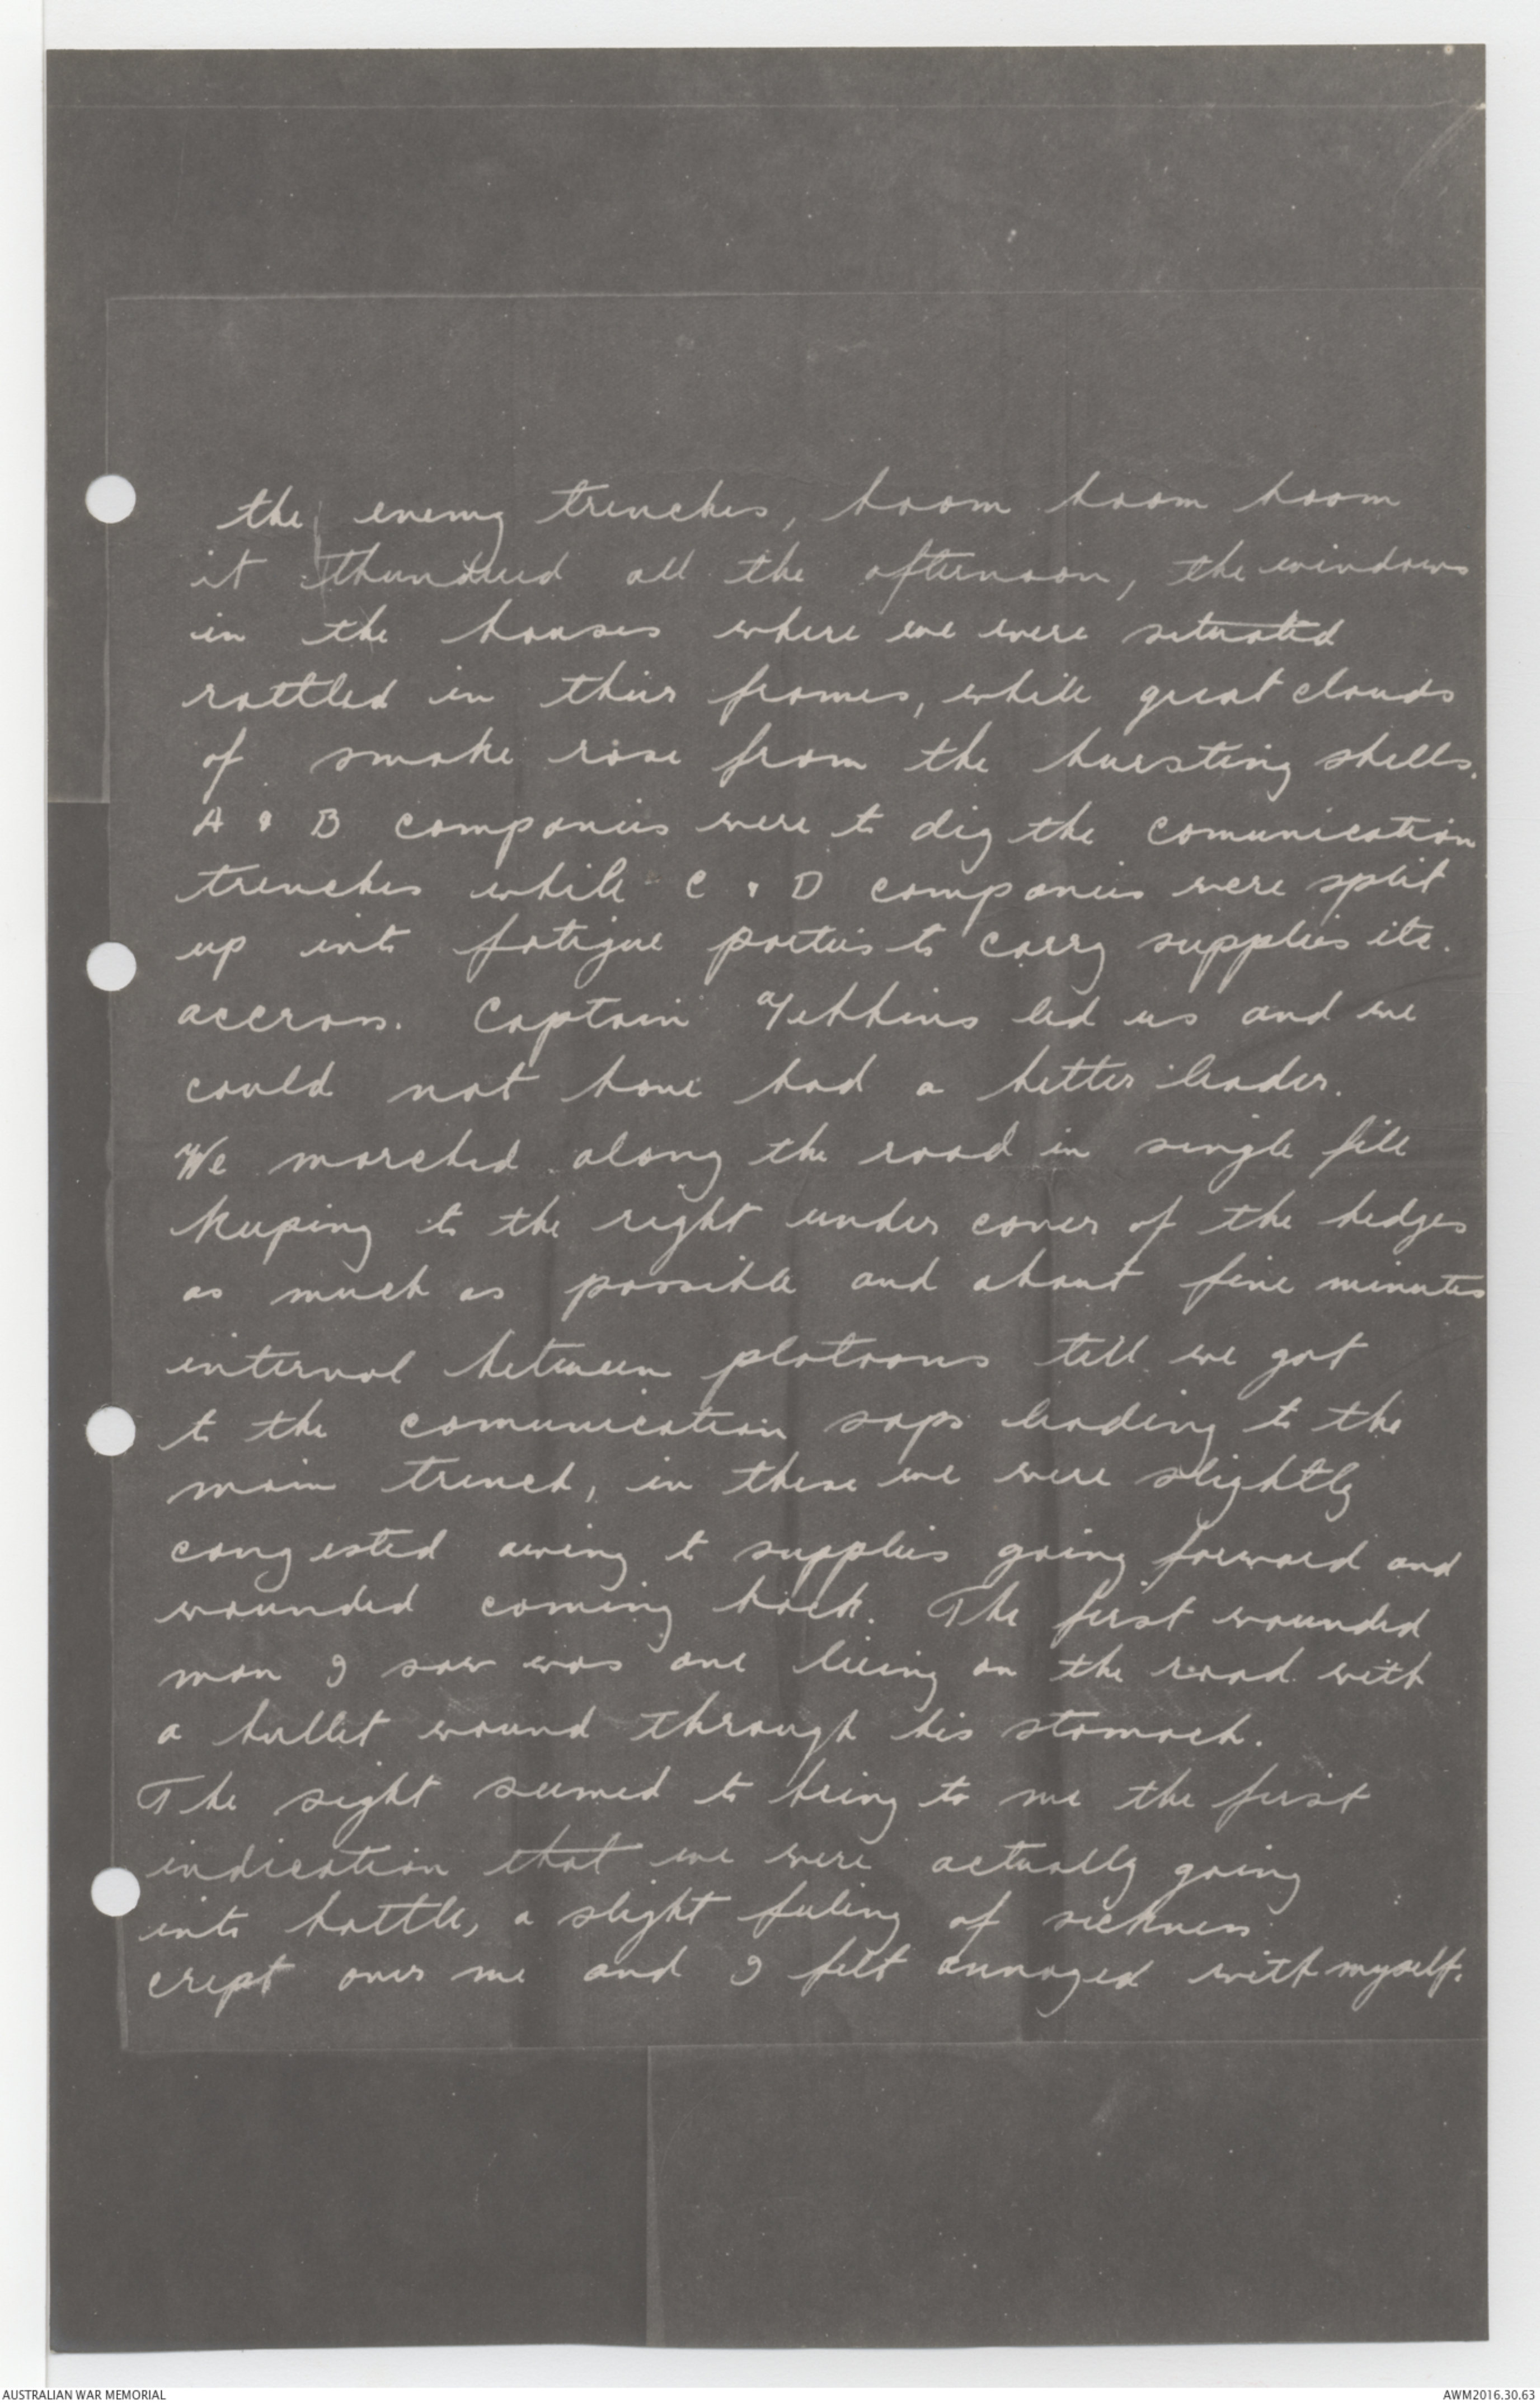 the enemy trenches, boom boom boom
it thundered all the afternoon, the windows
in the houses where we were situated
rattled in their frames, while great clouds
of smoke rose from the bursting shells.
A & B companies were to dig the comunication
trenches while C & D companies were split
up into fatigue parties to carry supplies etc.
accross. Captain Gibbins led us and we
could not have had a better leader.
We marched along the road in single file
keeping to the right under cover of the hedges
as much as possible and about five minutes
interval between platoons till we got
to the comunication saps leading to the
main trench, in these we were slightly
congested owing to supplies going forward and
wounded coming back. The first wounded
man I saw was one lieing on the road with
a bullet wound through his stomach.
The sight seemed to bring to me the first
indication that we were actually going
into battle, a slight feeling of sickness
crept over me and I felt annoyed with myself.
AUSTRALIAN WAR MEMORIAL
AWM2016.30.63